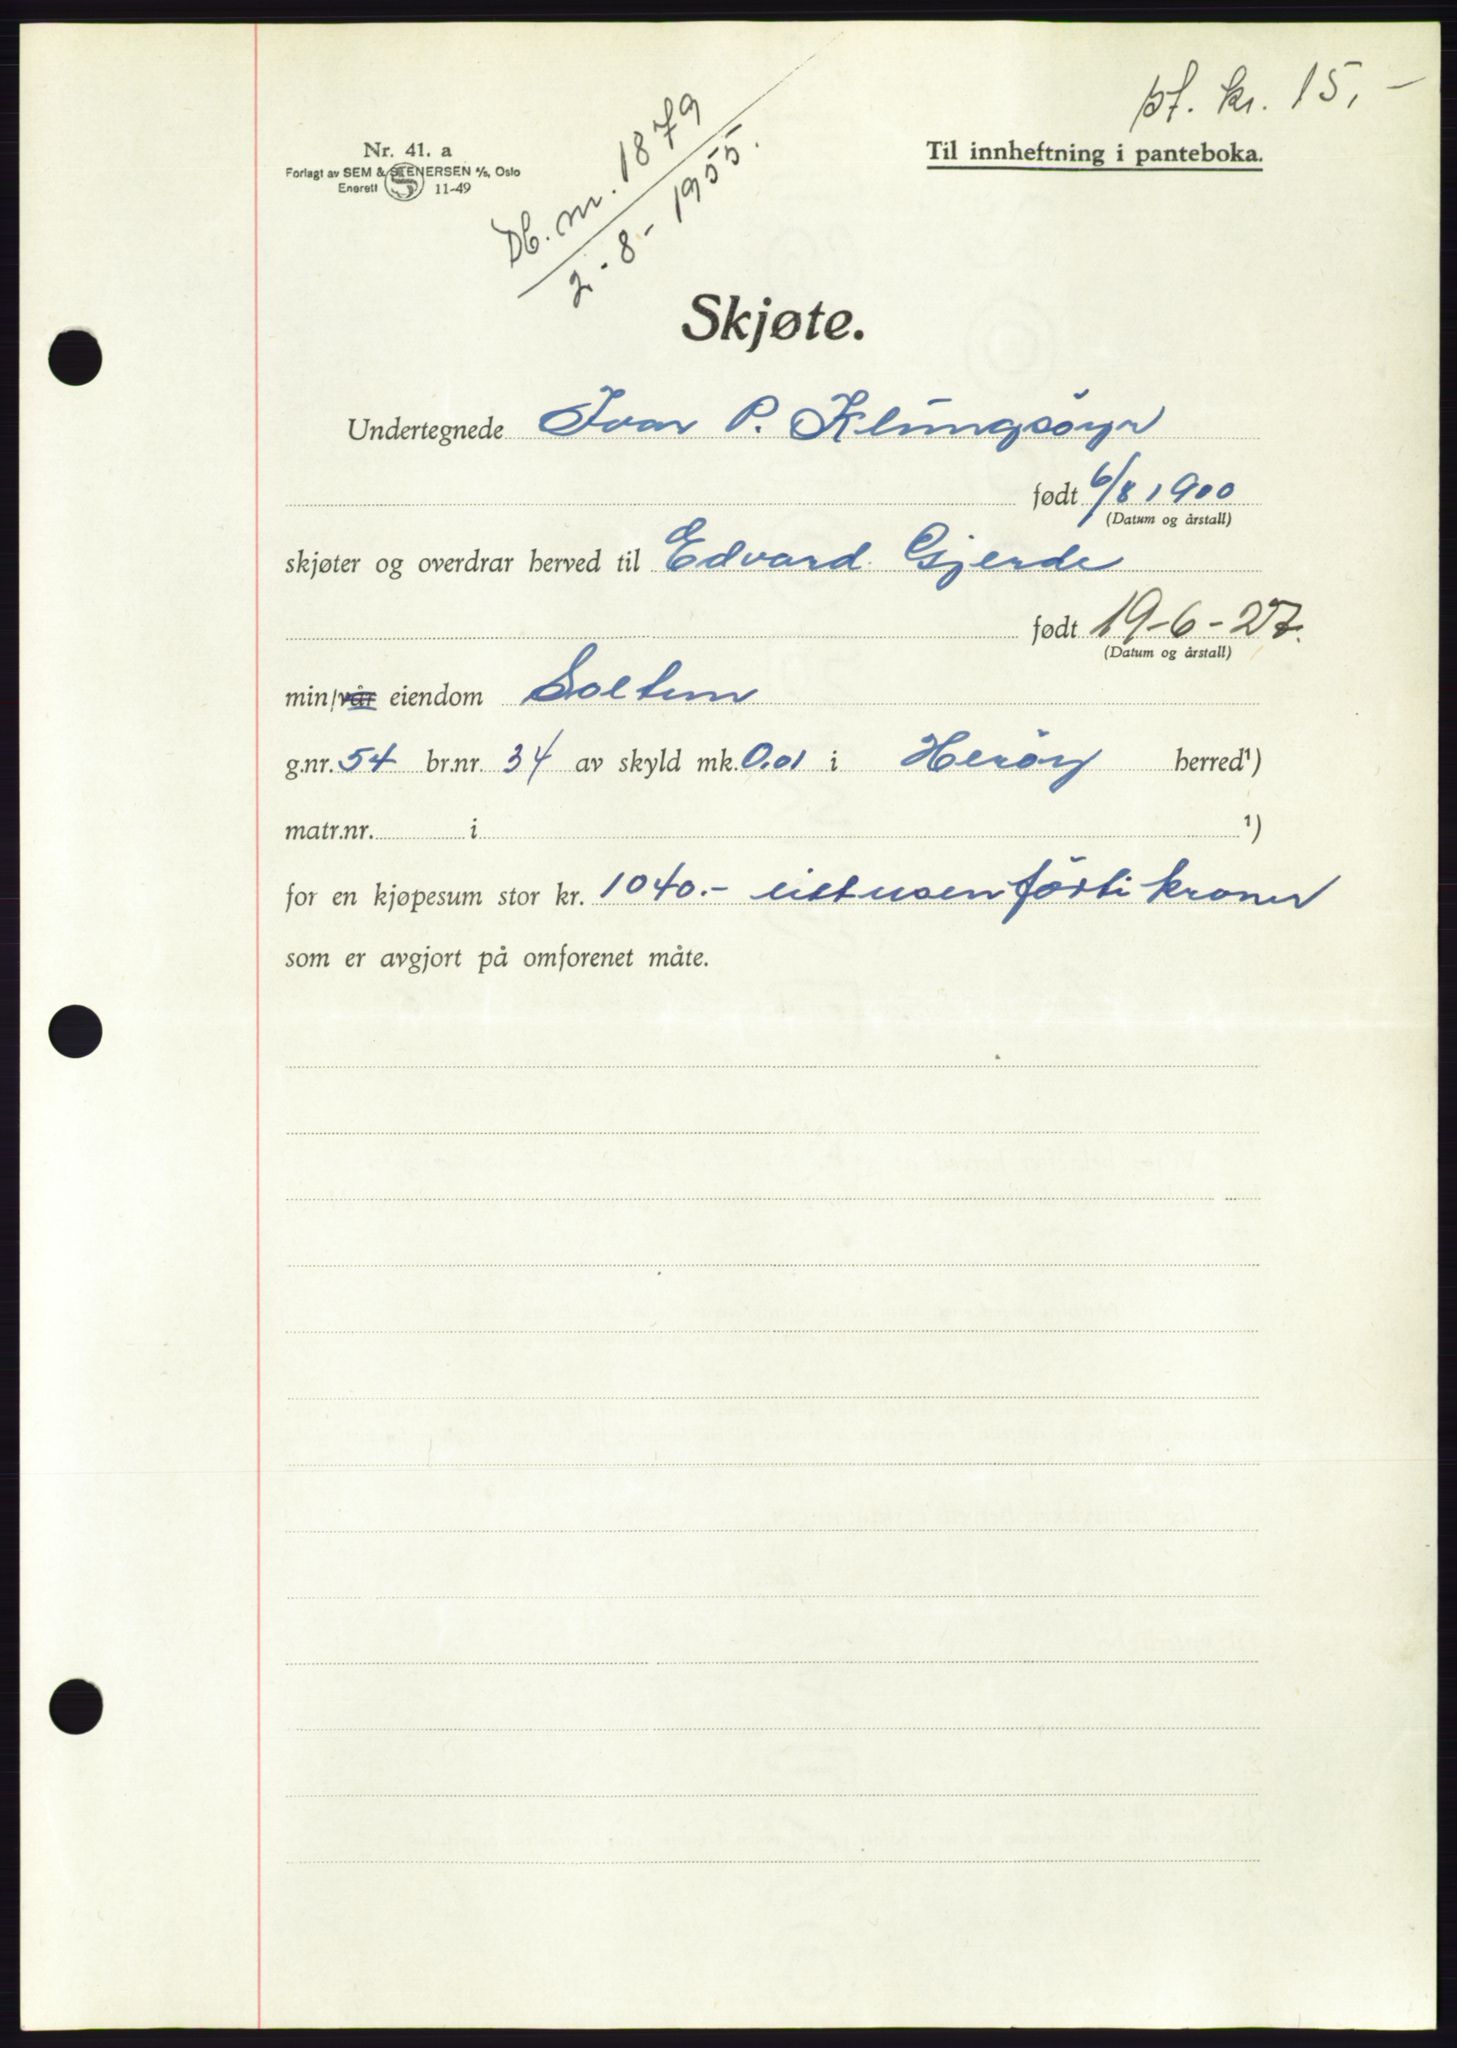 pf. kr. 15,-
Nr. 41. a
Forlagt av SEM & STENERSEN A/S, Oslo
Enerett 11-49
Til innheftning i panteboka.
Db. nr. 1879
2-8-1955.
Skjøte.
Undertegnede Ivar P. Klungsöyr
født 6/8 1900
(Datum og årstall)
skjøter og overdrar herved til Edvard Gjerde
født 19-6-27.
(Datum og årstall)
min/vår eiendom Soltun
g.nr. 54 br.nr. 34 av skyld mk. 0.01 i Heröy herred¹)
matr.nr. i ¹)
for en kjøpesum stor kr. 1040.- eittusenförti kroner
som er avgjort på omforenet måte.